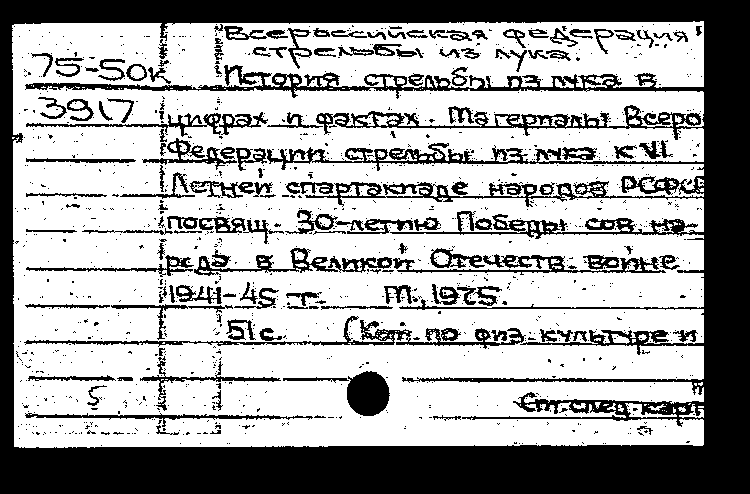 Всероссийская федерация
стрельбы из лука.
75-50к История стрельбы из лука в
3917 цифрах и фактах. Материалы Всеро
Федерации стрельбы из лука к VI
Летней спартакиаде народов РСФСР
посвящ. 30-летию Победы сов. на-
рода в Великой Отечеств. войне
1941-45 гг. М., 1975.
51с. (Ком. по физ. культуре и
5 См. след. карт